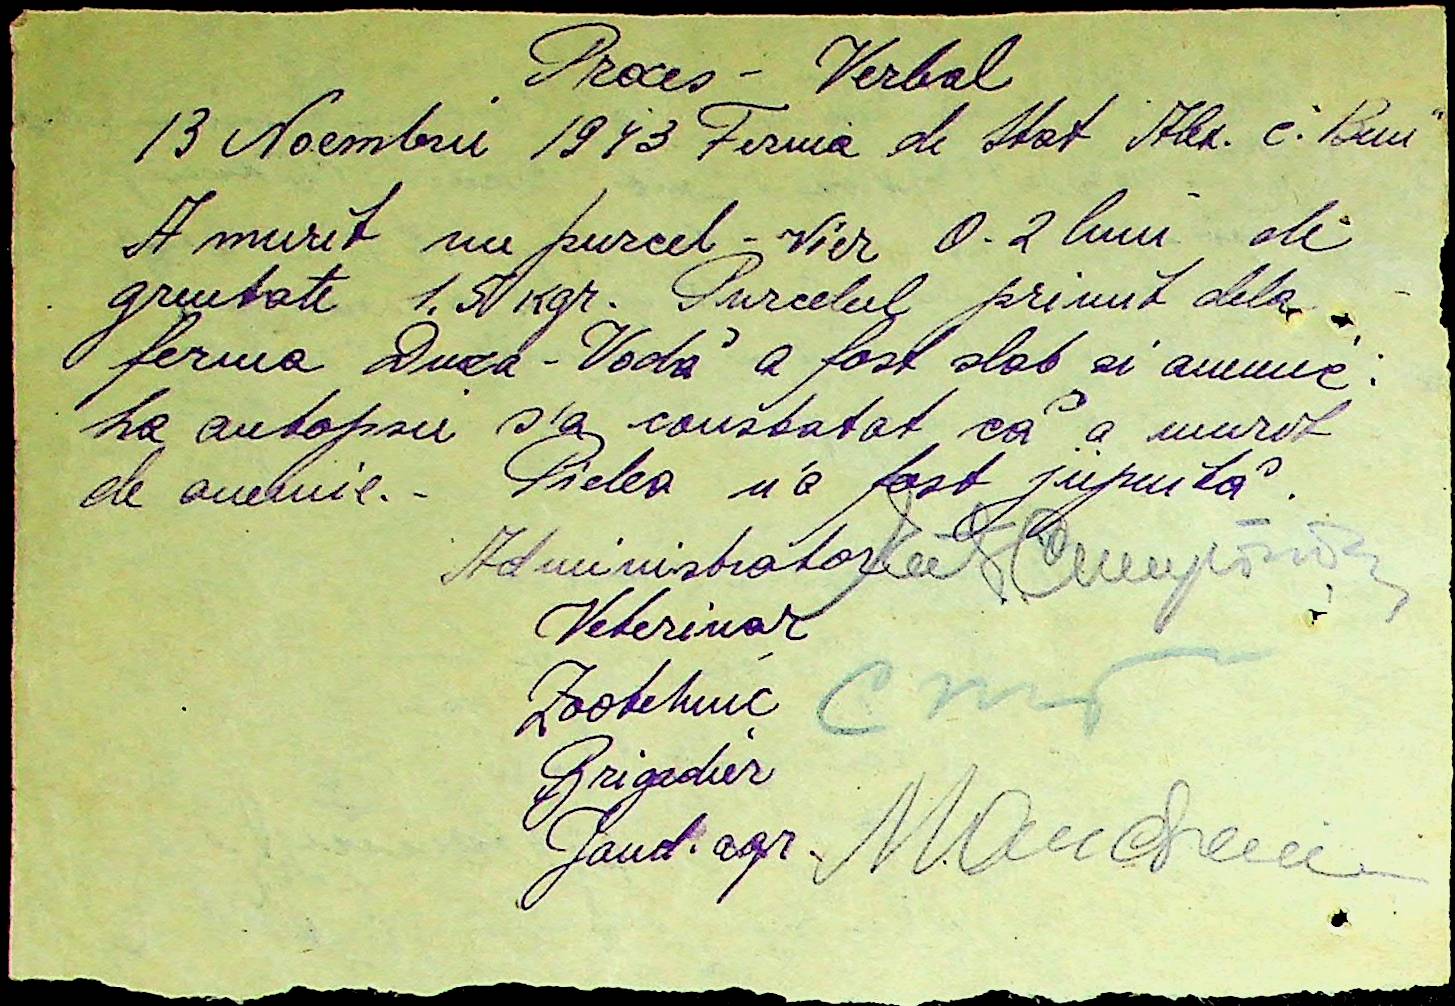 Proces - Verbal
13 Noembrii 1943 Ferma de Stat Alex. c.
A murit un purcel - vier 0-2 luni de
greutate 1,5 kgr. Purcelul primit dela
ferma Duca - Vodă a fost slab si anemic.
La autopsie s'a constatat că a murit
de anemie. - Pielea n'a fost jupuită.
Administrator
Veterinar
Zootehnic
Brigadier
Jand. agr.